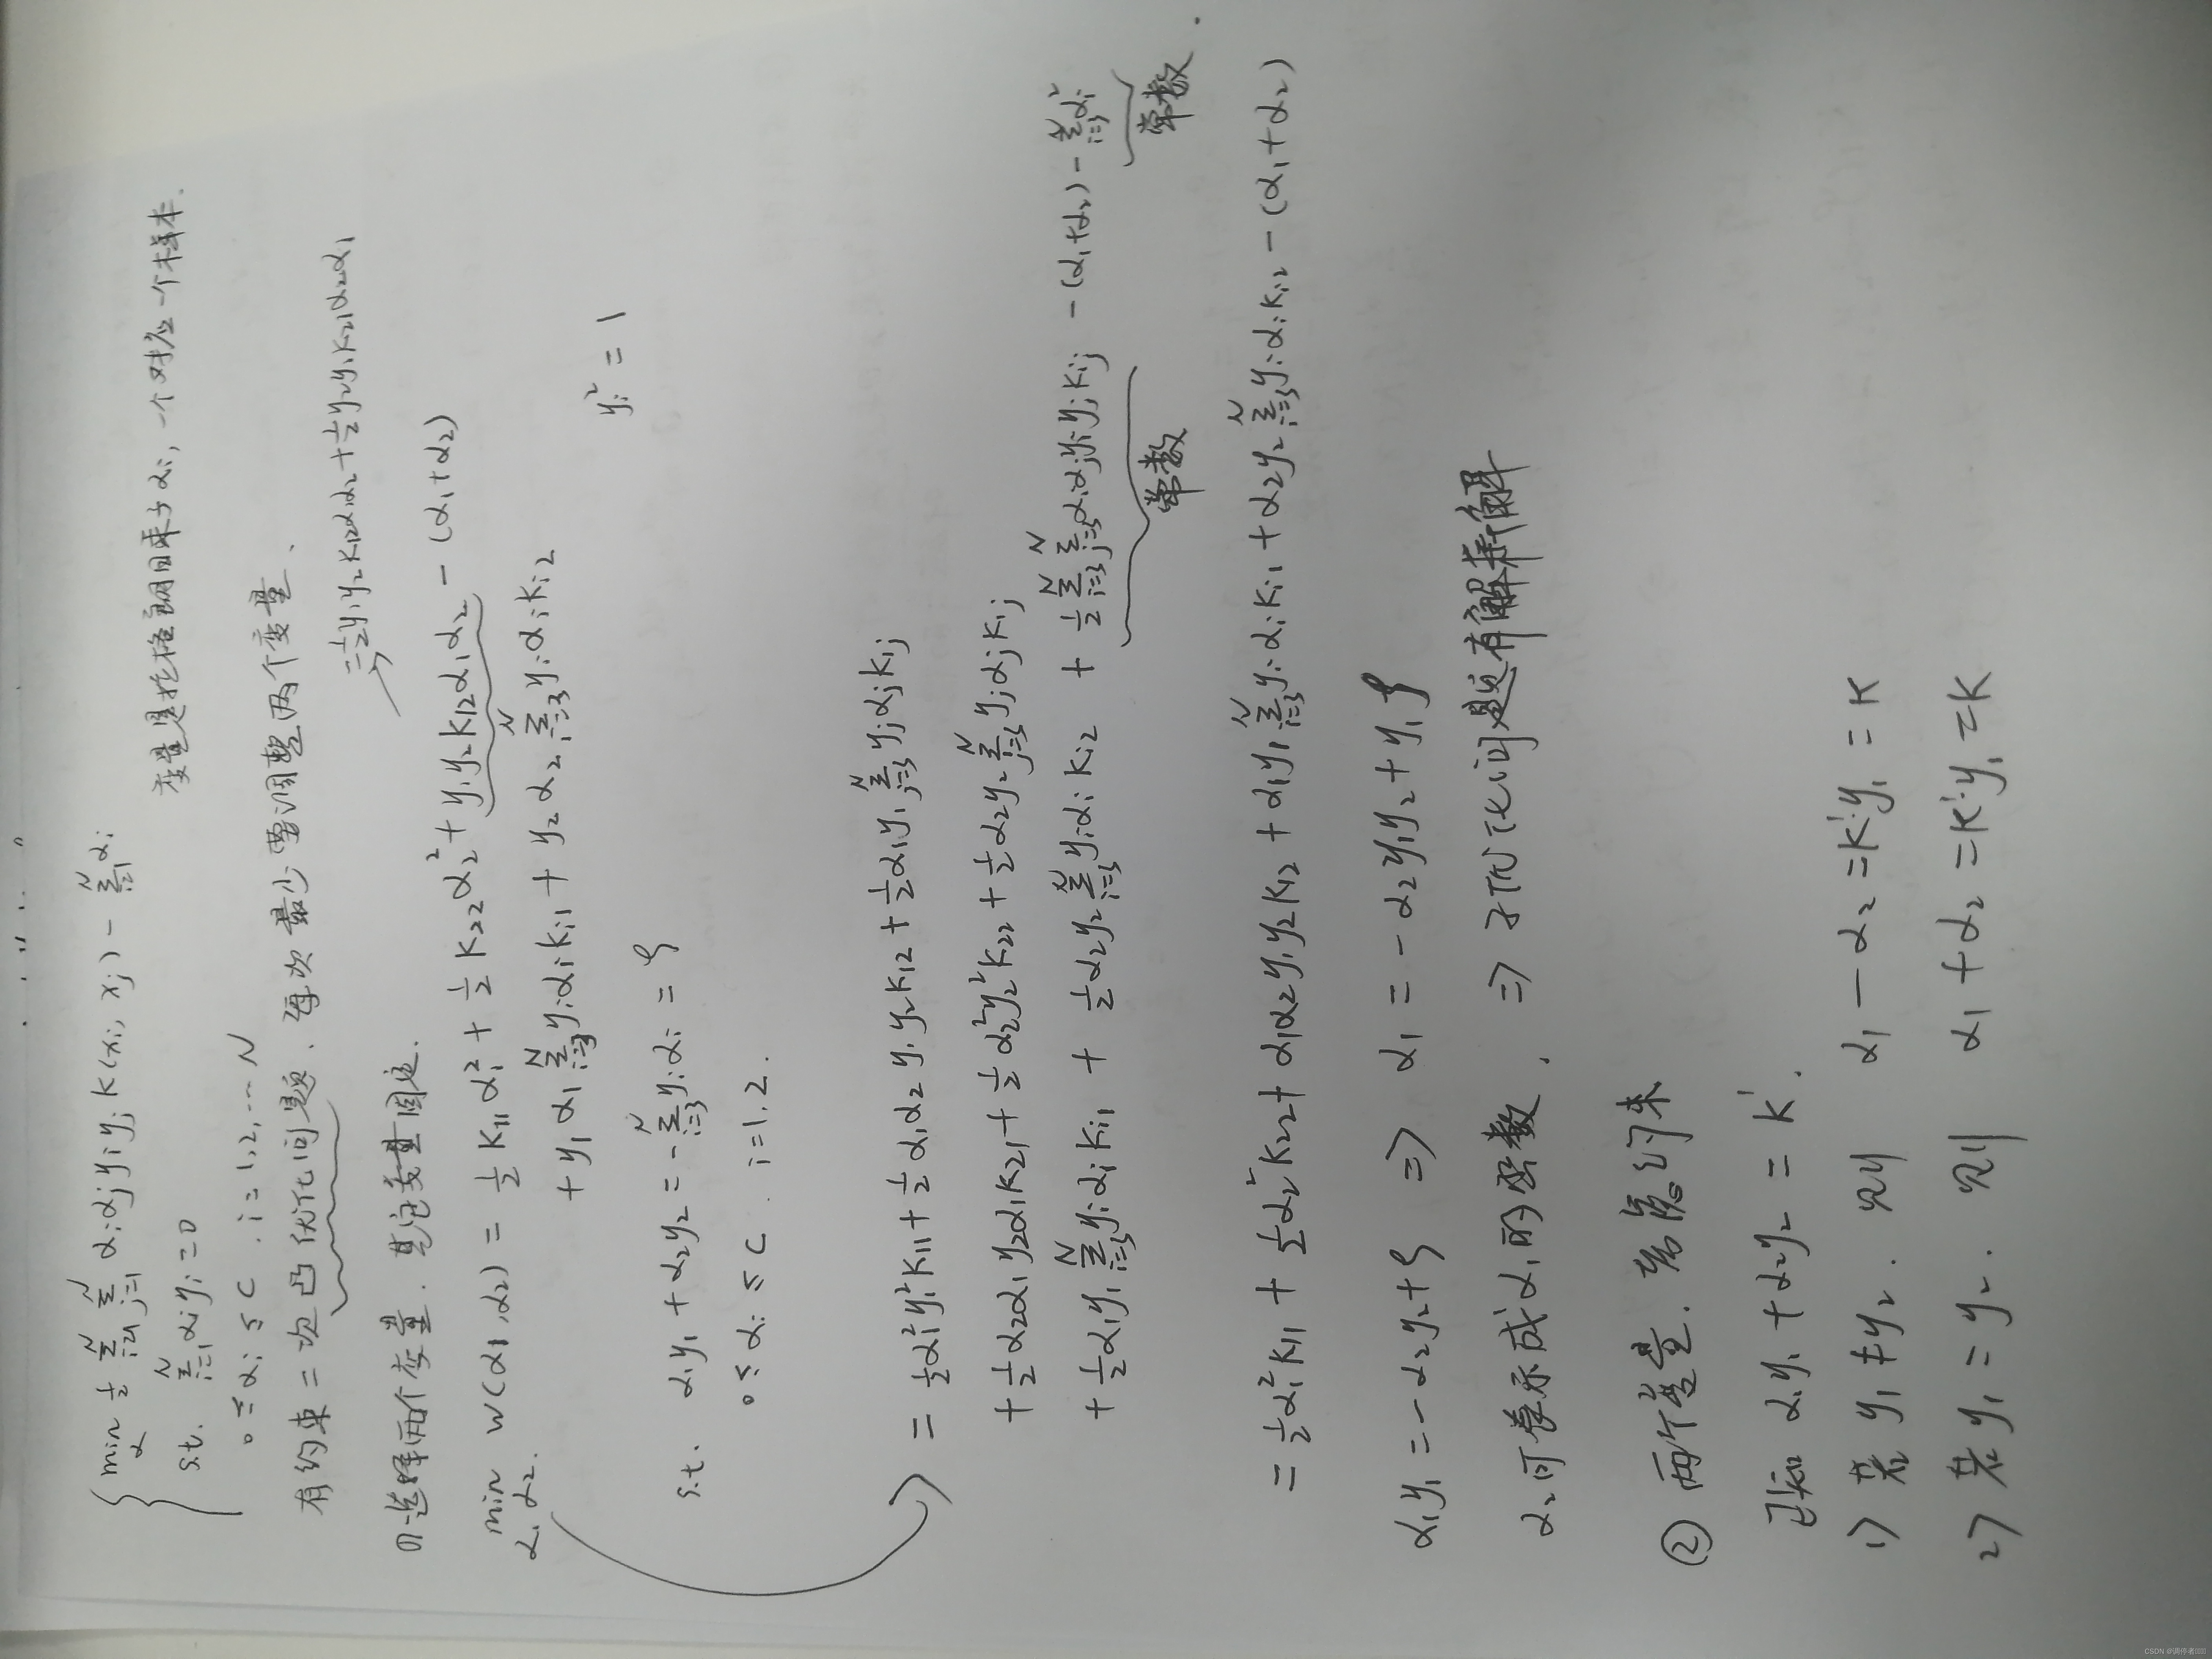 min α ½ Σ_{i=1}^N Σ_{j=1}^N αiαjyiyjK(xi, xj) - Σ_{i=1}^N αi
s.t. Σ_{i=1}^N αiyi=0
变量是拉格朗日乘子αi, 一个对应一个样本.
0≤αi≤C, i=1,2,...N
有约束二次凸优化问题. 每次最少要调整两个变量.
⇒ =½y1y2K12α1α2+½y2y1K21α2α1
选择两个变量. 其它变量固定.
min α1,α2. W(α1,α2) = ½K11α1²+½K22α2²+y1y2K12α1α2-(α1+α2)
+y1α1Σ_{i=3}^N yiαiKi1+y2α2Σ_{i=3}^N yiαiKi2
yi²=1
s.t. α1y1+α2y2=-Σ_{i=3}^N yiαi=ς
0≤αi≤C. i=1,2.
=½α1²y1²K11+½α1α2y1y2K12+½α1y1Σ_{j=3}^N yjαjKij
+½α2α1y2α1K21+½α2²y2²K22+½α2y2Σ_{j=3}^N yjαjKij
+½α1y1Σ_{i=3}^N yiαiKi1+½α2y2Σ_{i=3}^N yiαiKi2+½Σ_{i=3}^N Σ_{j=3}^N αiαjyiyjKij-(α1+α2)-Σ_{i=3}^N αi
常数 常数.
=½α1²K11+½α2²K22+α1α2y1y2K12+α1y1Σ_{i=3}^N yiαiKi1+α2y2Σ_{i=3}^N yiαiKi2-(α1+α2)
α1y1=-α2y2+ς ⇒ α1=-α2y1y2+y1ς
α2可表示成α1的函数. ⇒ 子优化问题有解释解
② 两个变量.
已知α1y1+α2y2=K'.
1) 若y1≠y2. 则 α1-α2=K'y1=K
2) 若y1=y2. 则 α1+α2=K'y1=K
CSDN @调停者